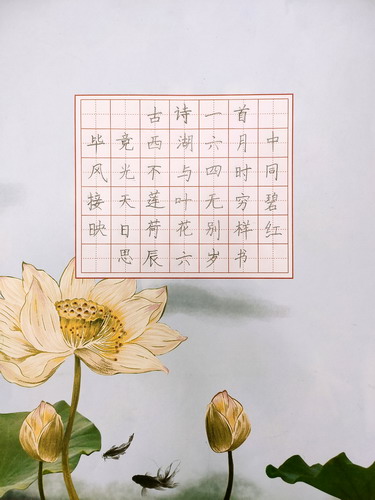 古诗一首
毕竟西湖六月中
风光不与四时同
接天莲叶无穷碧
映日荷花别样红
思辰六岁书